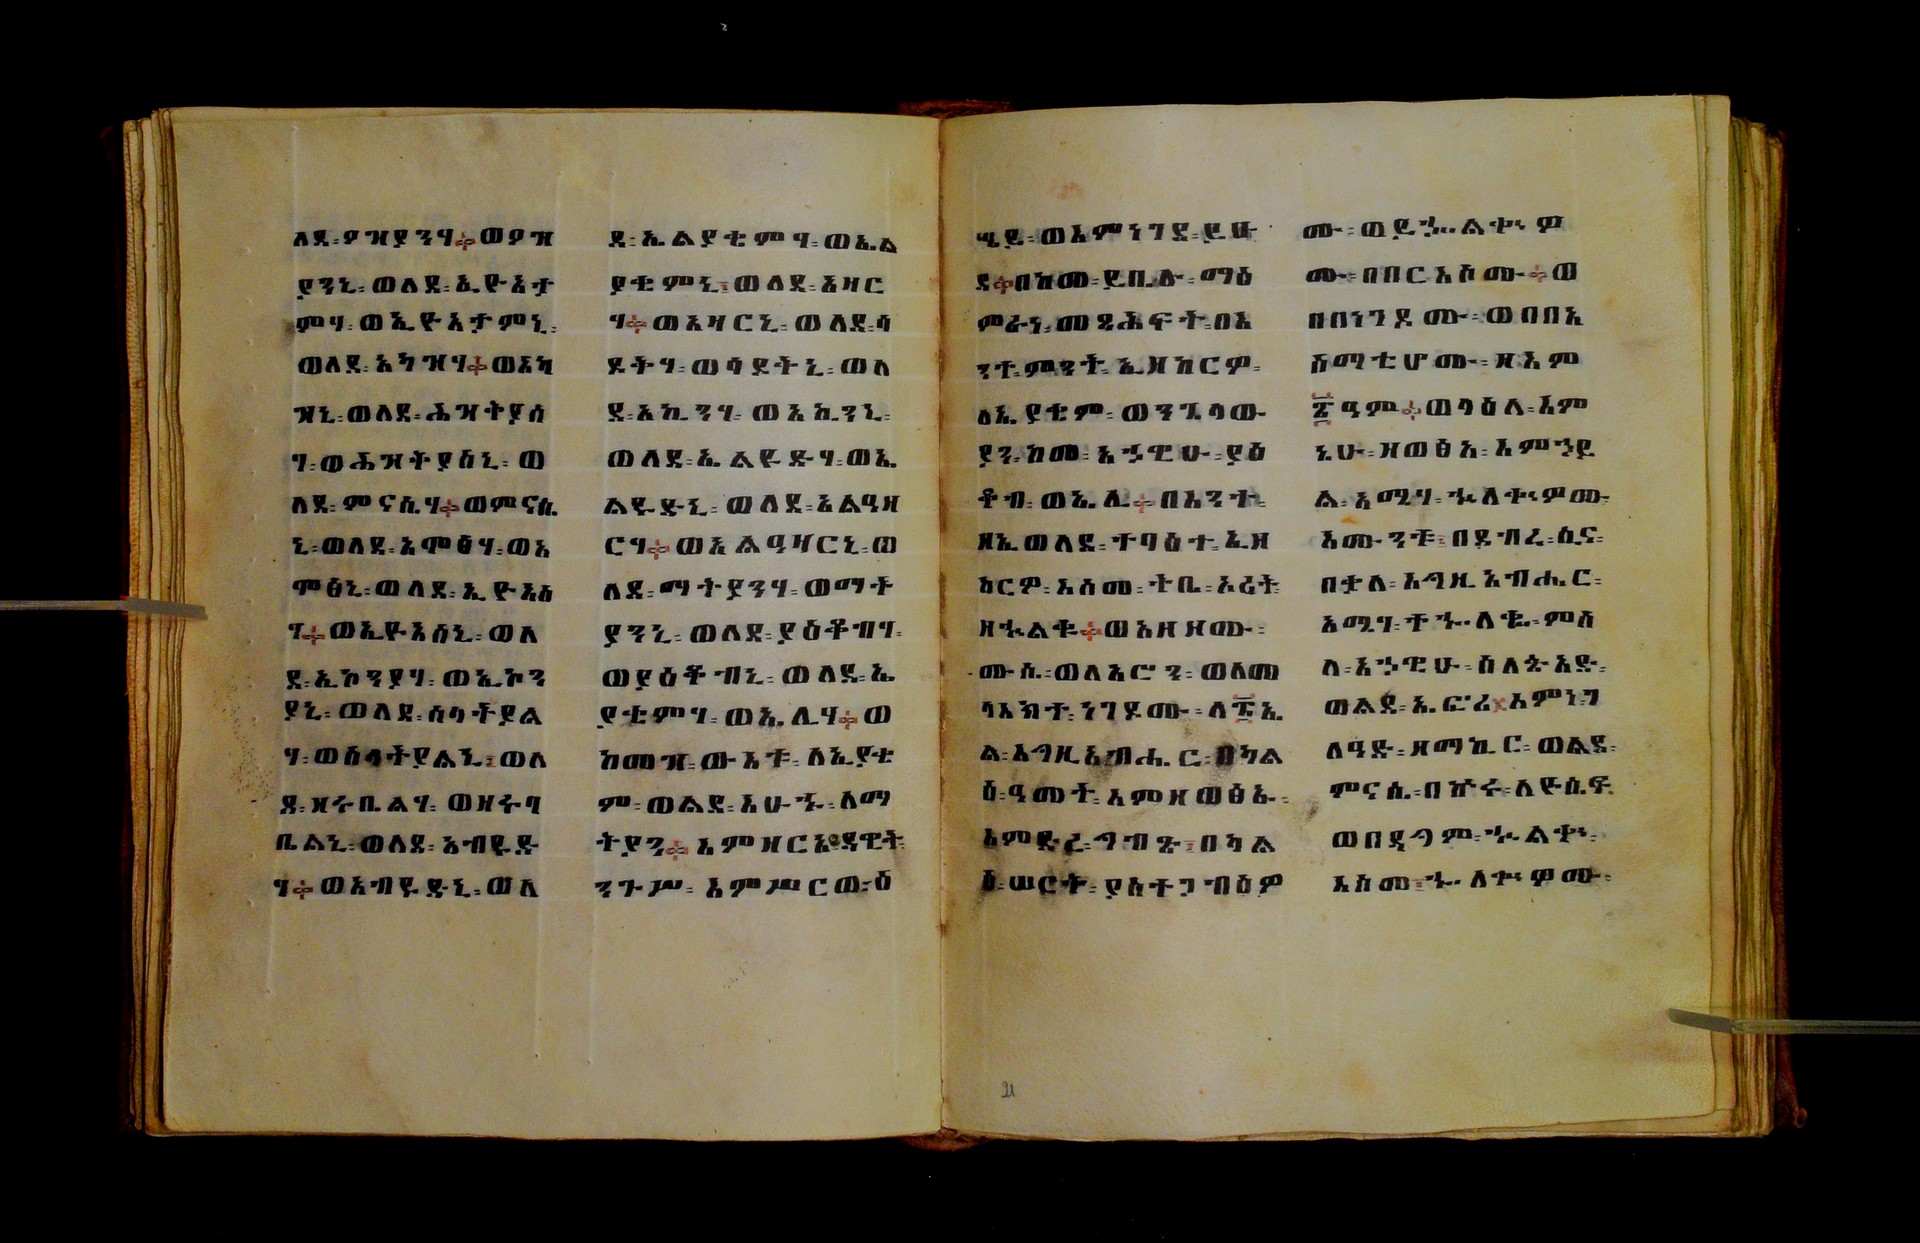 ለደ፡ዖዝያንሃ፨ወዖዝ
ያንኒ፡ወለደ፡ኢዮአታ
ምሃ፡ወኢዮአታምኒ፡
ወለደ፡አካዝሃ፨ወአካ
ዝኒ፡ወለደ፡ሕዝትያስ
ሃ፡ወሕዝትያስኒ፡ወ
ለደ፡ምናሴሃ፨ወምናሴ
ኒ፡ወለደ፡አሞፅሃ፡ወአ
ሞፅኒ፡ወለደ፡ኢዮአስ
ሃ፨ወኢዮአስኒ፡ወለ
ደ፡ኢኮንያሃ፡ወኢኮን
ያኒ፡ወለደ፡ሰላትያል
ሃ፡ወሰላትያልኒ፡ወለ
ደ፡ዘሩቤልሃ፡ወዘሩባ
ቤልኒ፡ወለደ፡አብዩድ
ሃ፨ወአብዩድኒ፡ወለ
ደ፡ኤልያቄምሃ፡ወኤል
ያቄምኒ፡ወለደ፡አዛር
ሃ፨ወአዛርኒ፡ወለደ፡ሳ
ዶትሃ፡ወሳዶትኒ፡ወለ
ደ፡አኪንሃ፡ወአኪንኒ፡
ወለደ፡ኤልዩድሃ፡ወኤ
ልዩድኒ፡ወለደ፡አልዓዛ
ርሃ፨ወአልዓዛርኒ፡ወ
ለደ፡ማትያንሃ፡ወማት
ያንኒ፡ወለደ፡ያዕቆብሃ፡
ወያዕቆብኒ፡ወለደ፡ኢ
ያቄምሃ፡ወኤሊሃ፨ወ
ከመዝ፡ውእቱ፡ለኢያቄ
ም፡ወልደ፡እሁኁ፡ለማ
ትያን፨እምዘርአ፡ዳዊት፡
ንጉሥ፡እምሥርወ፡ዕ
ሤይ፡ወእምነገደ፡ይሁ
ዳ፨በከመ፡ይቤሉ፡ማዕ
ምራነ፡መጻሕፍት፡በእ
ንተ፡ምንት፡ኢዘከርዎ፡
ለኢያቄም፡ወንጌላው
ያን፡ከመ፡እኅዊሁ፡ያዕ
ቆብ፡ወኤሊ፨በእንተ፡
ዘኢወለደ፡ተባዕተ፡ኢዘ
ከርዎ፡እስመ፡ትቤ፡ኦሪት፡
ዘኍልቍ፨ወአዘዘሙ፡
ሙሴ፡ወለአሮን፡ወለመ
ላእክተ፡ነገዶሙ፡
ል፡እግዚአብሔር፡በካል
ዕ፡ዓመት፡እምዘወፅኡ፡
እምድረ፡ግብጽ፡በካል
ዕ፡ሠርቀ፡ያስተጋብዕዎ
ሙ፡ወይኈልቍዎ
ሙ፡በበርእሶሙ፨ወ
በበነገዶሙ፡ወበበአ
ቡማቲሆሙ፡ዘእም
፳ዓም፨ወላዕለ፡እም
ኔሁ፡ዘወፅአ፡እምኀይ
ል፡አሚሃ፡ኈለቍዎሙ፡
እሙንቱ፡በደብረ፡ሲና፡
በቃለ፡እግዚአብሔር፡
አሚሃ፡ተኈለቈ፡ምስ
ለ፡አኀዊሁ፡ሰለጰአድ፡
ወልደ፡ኤፍሬ፡እምነገ
ለዓድ፡ዘማኪር፡ወልደ፡
ምናሴ፡በኵሩ፡ለዮሴፍ፡
ወበዳግም፡ኍልቍ፡
እስመ፡ኈለቍዎሙ፡